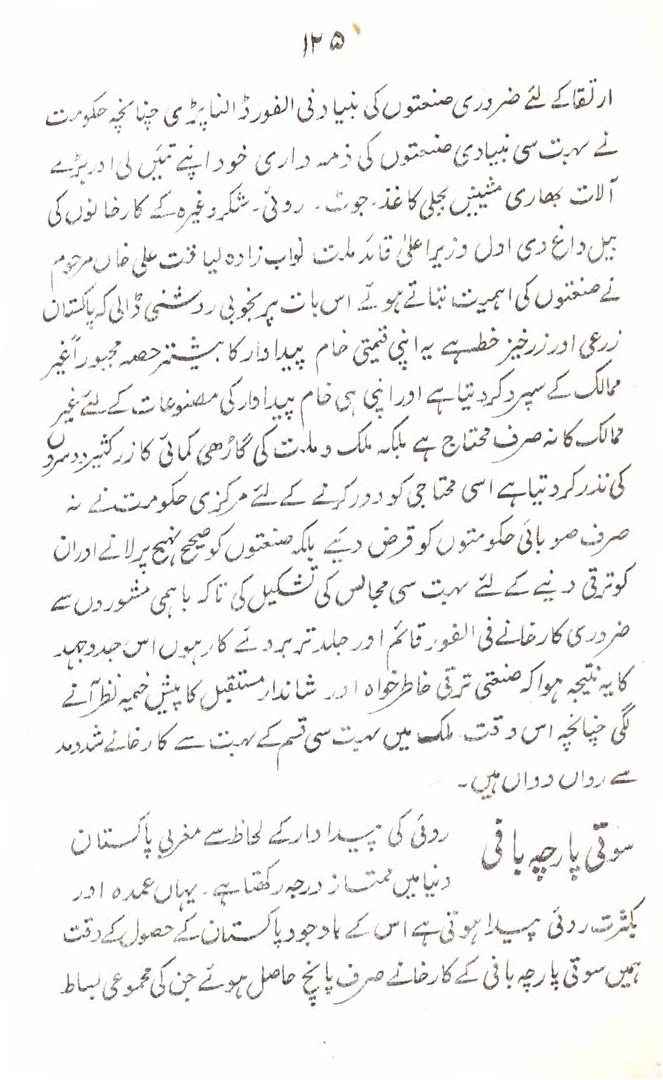 ۱۲۵
ارتقا کے لئے ضروری صنعتوں کی بنیاد فی الفور ڈالنا پڑی چنانچہ حکومت
نے بہت سی بنیادی صنعتوں کی ذمہ داری خود اپنے تئیں لی اور بڑے
آلات بھاری مشینیں بجلی کاغذ۔ جوٹ۔ روئی۔ شکر وغیرہ کے کارخانوں کی
بیل داغ دی اول وزیر اعلیٰ قائد ملت نواب زادہ لیاقت علی خاں مرحوم
نے صنعتوں کی اہمیت بتاتے ہوئے اس بات پر بخوبی روشنی ڈالی کہ پاکستان
زرعی اور زرخیز خطہ ہے یہ اپنی قیمتی خام پیداوار کا بیشتر حصہ مجبوراً غیر
ممالک کے سپرد کر دیتا ہے اور اپنی ہی خام پیداوار کی مصنوعات کے لئے غیر
ممالک کا نہ صرف محتاج ہے بلکہ ملک و ملت کی گاڑھی کمائی کا زر کثیر دوسروں
کی نذر کر دیتا ہے اسی محتاجی کو دور کرنے کے لئے مرکزی حکومت نے نہ
صرف صوبائی حکومتوں کو قرض دیئے بلکہ صنعتوں کو صحیح نہج پر لانے اور ان
کو ترقی دینے کے لئے بہت سی مجالس کی تشکیل کی تاکہ باہمی مشوروں سے
ضروری کارخانے فی الفور قائم اور جلد تر بروئے کار ہوں اس جدوجہد
کا یہ نتیجہ ہوا کہ صنعتی ترقی خاطر خواہ اور شاندار مستقبل کا پیش خیمہ نظر آنے
لگی چنانچہ اس وقت ملک میں بہت سی قسم کے بہت سے کارخانے شد و مد
سے رواں دواں ہیں۔
سوتی پارچہ بافی روئی کی پیداوار کے لحاظ سے مغربی پاکستان
دنیا میں ممتاز درجہ رکھتا ہے۔ یہاں عمدہ اور
بکثرت روئی پیدا ہوتی ہے اس کے باوجود پاکستان کے حصول کے وقت
ہمیں سوتی پارچہ بافی کے کارخانے صرف پانچ حاصل ہوئے جن کی مجموعی بساط